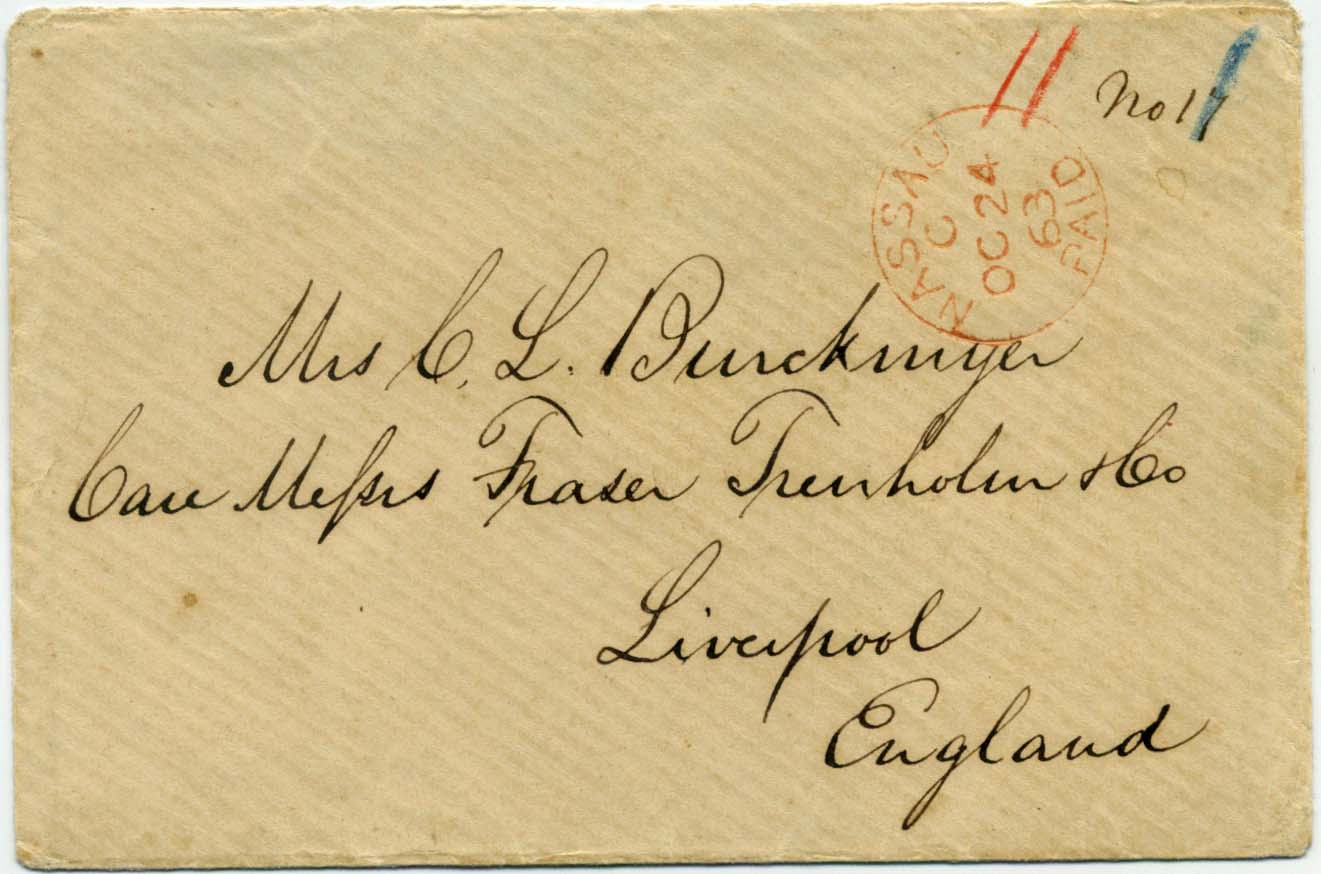 No 17
NASSAU
C
OC 24
63
PAID
Mrs C. L. Burckmyer
Care Messrs Fraser Trenholm & Co
Liverpool
England